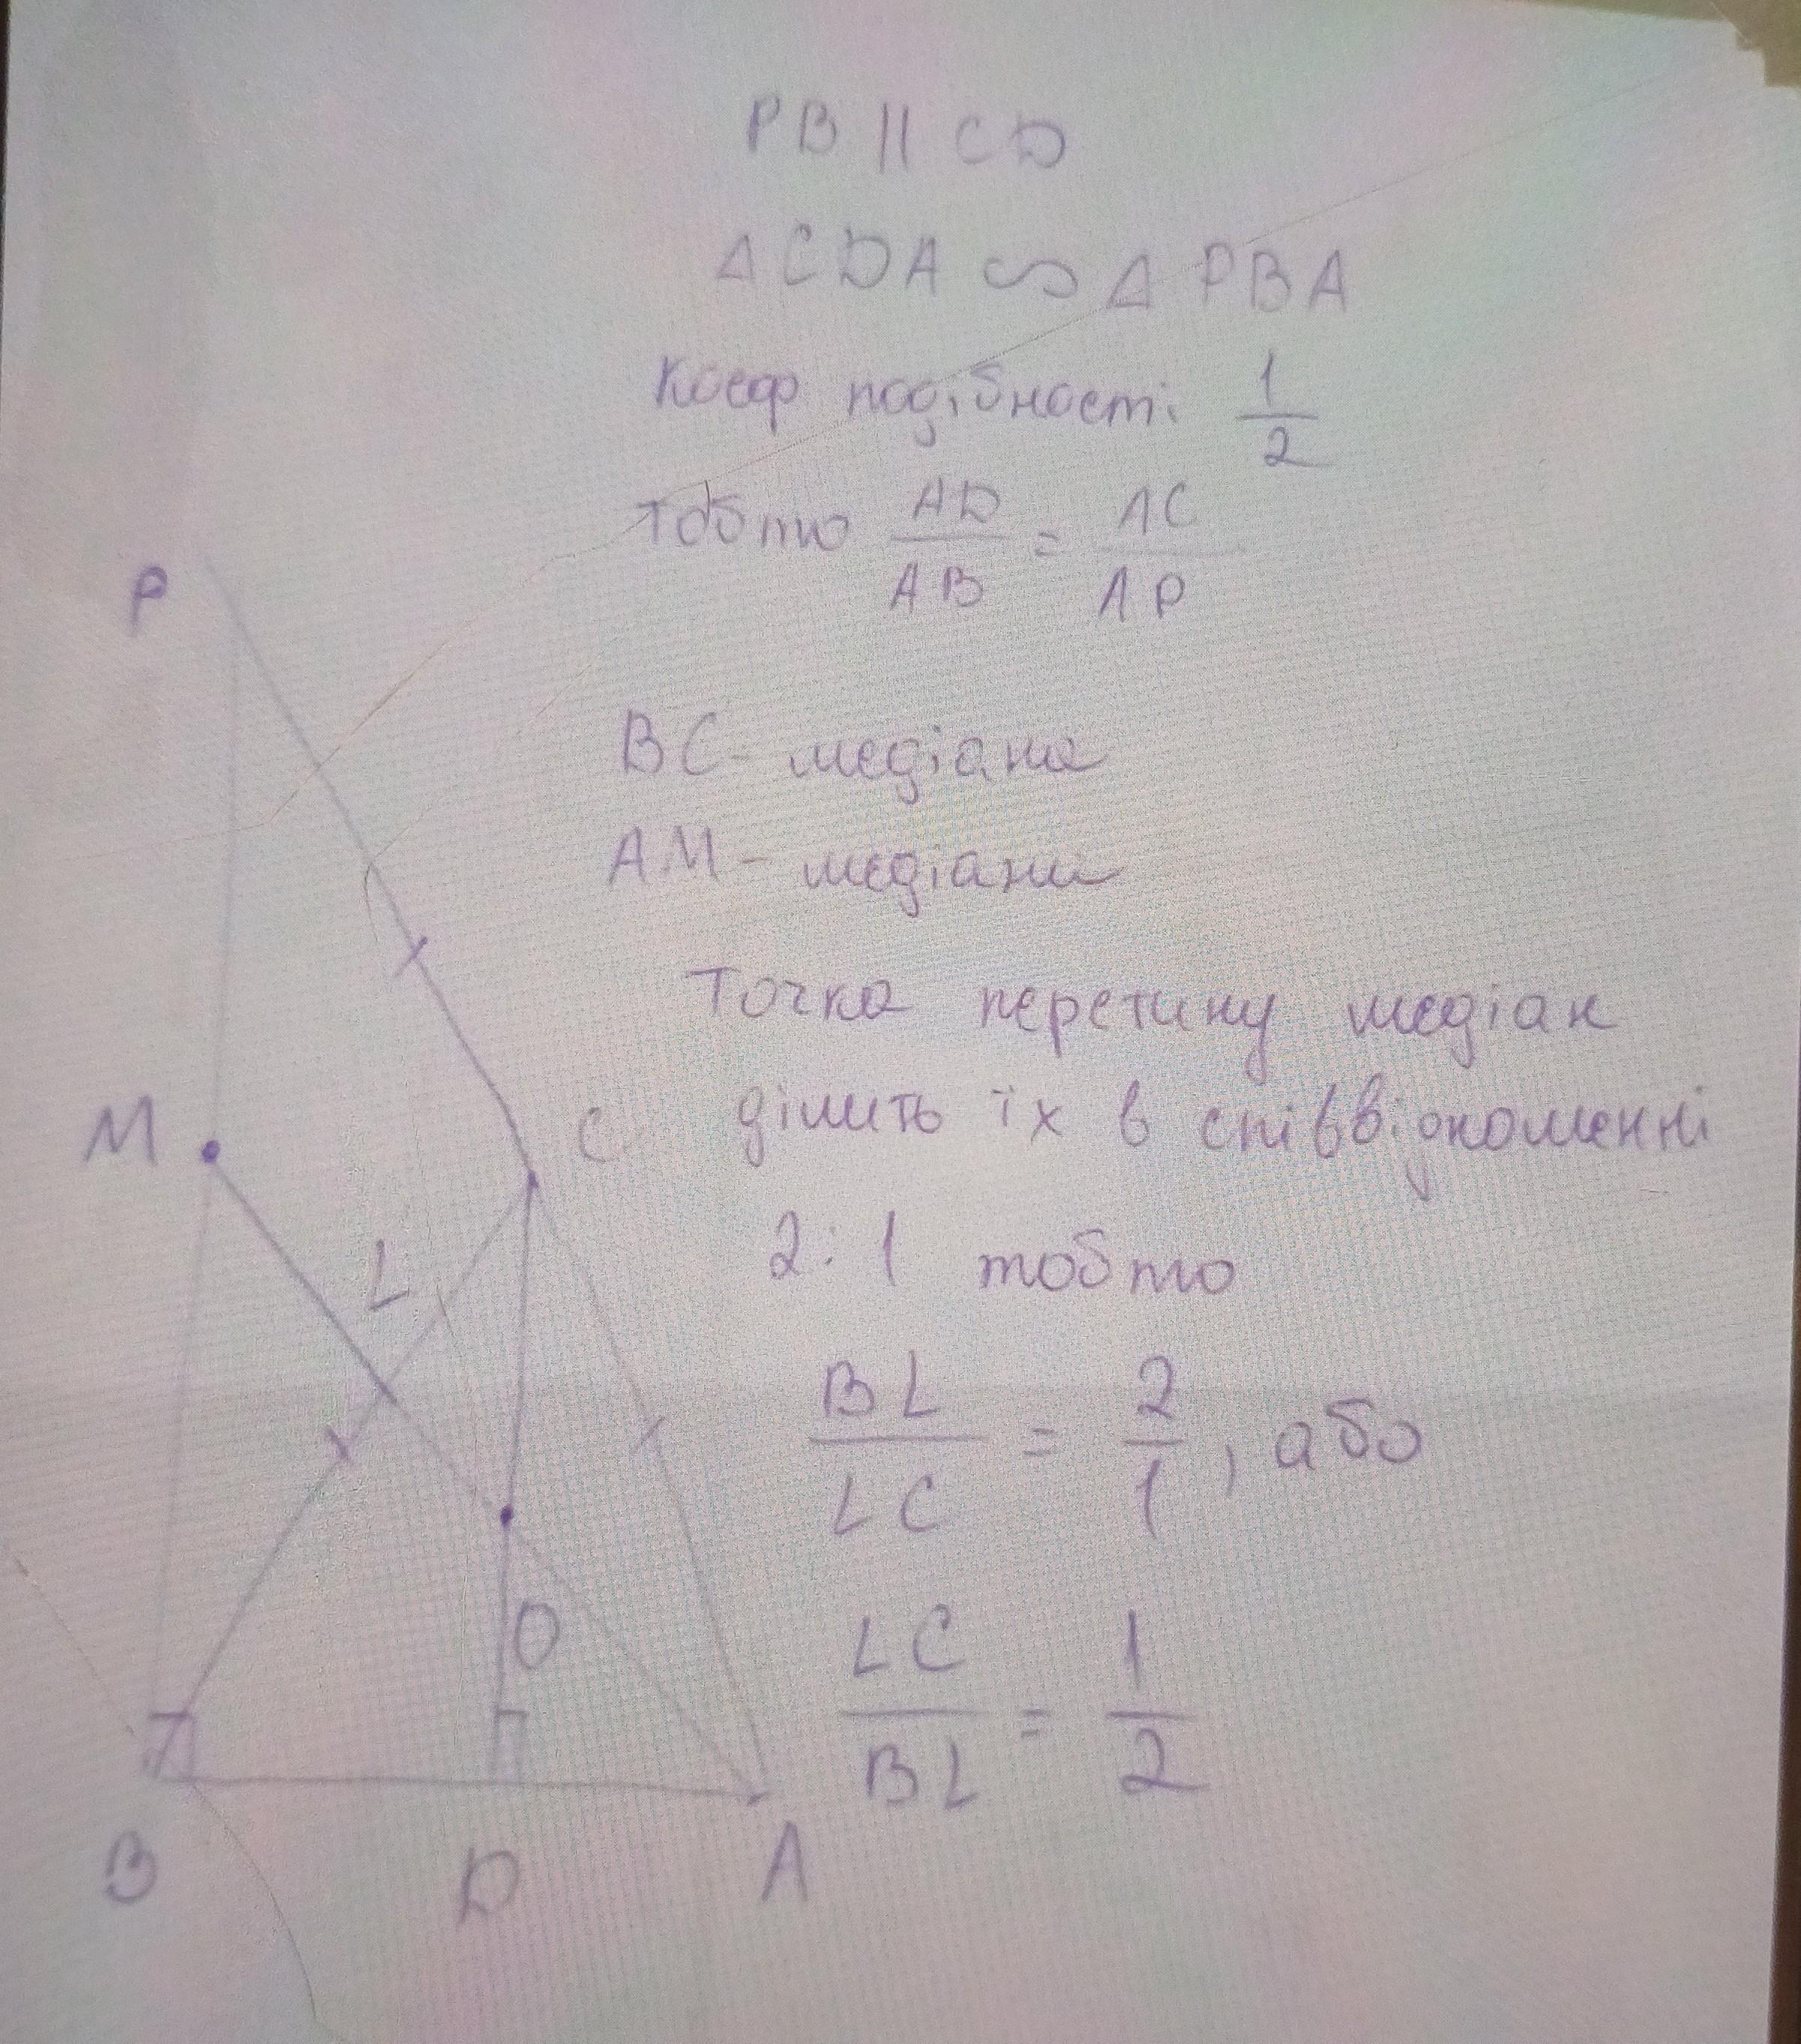 PB || CD
△CDA ∽ △PBA
Коеф подібності 1/2
Тобто AD/AB = AC/AP
P
BC - медіана
AM - медіана
Точка перетину медіан
M
C
ділить їх в співвідношенні
2:1 тобто
L
BL/LC = 2/1, або
O
LC/BL = 1/2
B
D
A